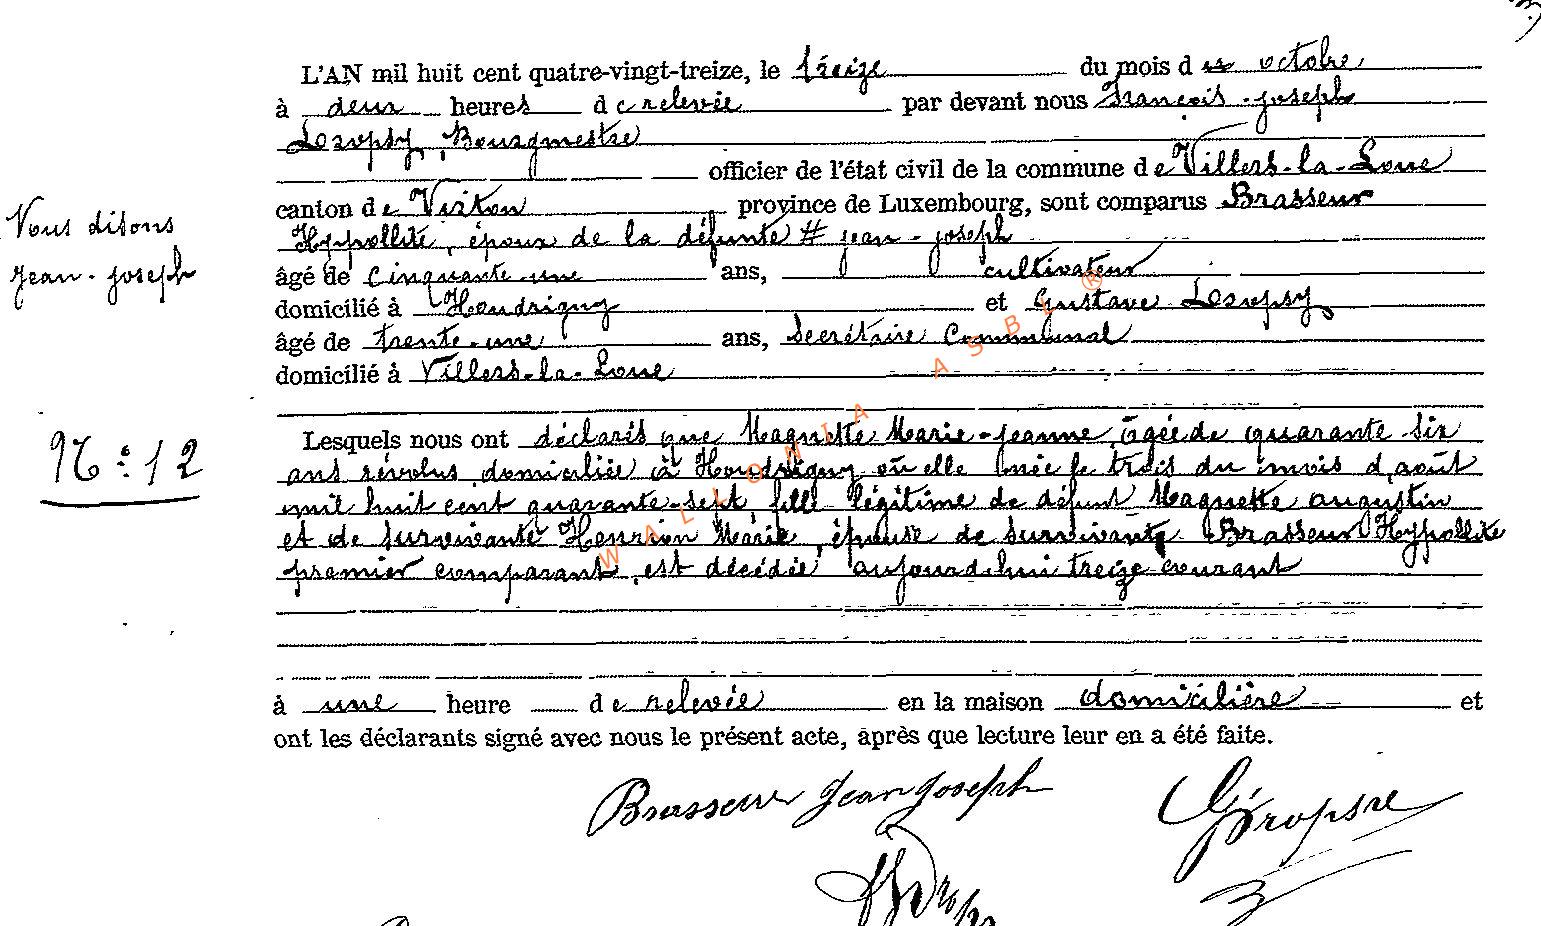 L'AN mil huit cent quatre-vingt-treize, le treize du mois d octobre
à deux heures de relevée par devant nous François-joseph
Bourgmestre
officier de l'état civil de la commune de Villers-la-Loue
canton de Virton province de Luxembourg, sont comparus Brasseur
Hyppollite, époux de la défunte # jean-joseph
âgé de cinquante-une ans, cultivateur
domicilié à Houdrigny et Gustave
âgé de trente-une ans, Secrétaire Communal
domicilié à Villers-la-Loue
Nous disons
Jean-joseph
N°: 12
Lesquels nous ont déclarés que Maguette Marie-jeanne, âgée de quarante six
ans révolus domiciliée à Houdrigny où elle née le trois du mois d,août
mil huit cent quarante-sept, fille légitime de défunt Maguette augustin
et de survivante Henrion Marie, épouse de survivante Brasseur Hypollite
premier comparant, est décédée aujourd-hui treize courant
à une heure de relevée en la maison domicilière et
ont les déclarants signé avec nous le présent acte, âprès que lecture leur en a été faite.
Brasseur Jean joseph
WALLONIA ASBL ®